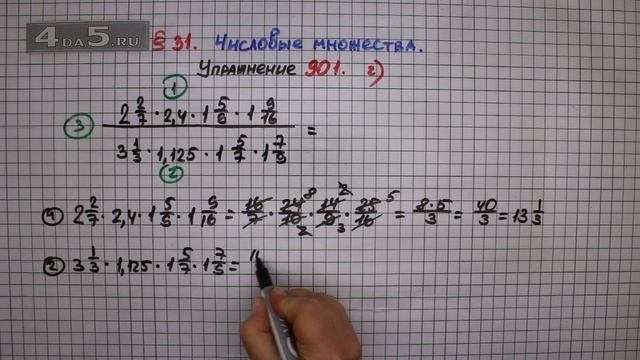 4DA5.RU
§ 31. Числовые множества.
Упражнение 901. г)
①
③ 2 2/7 · 2,4 · 1 5/9 · 1 9/16
3 1/3 · 1,125 · 1 5/7 · 1 7/9 =
②
① 2 2/7 · 2,4 · 1 5/9 · 1 9/16 = 16/7 · 24/10 · 14/9 · 25/16 = 8·5/3 = 40/3 = 13 1/3
② 3 1/3 · 1,125 · 1 5/7 · 1 7/9 =